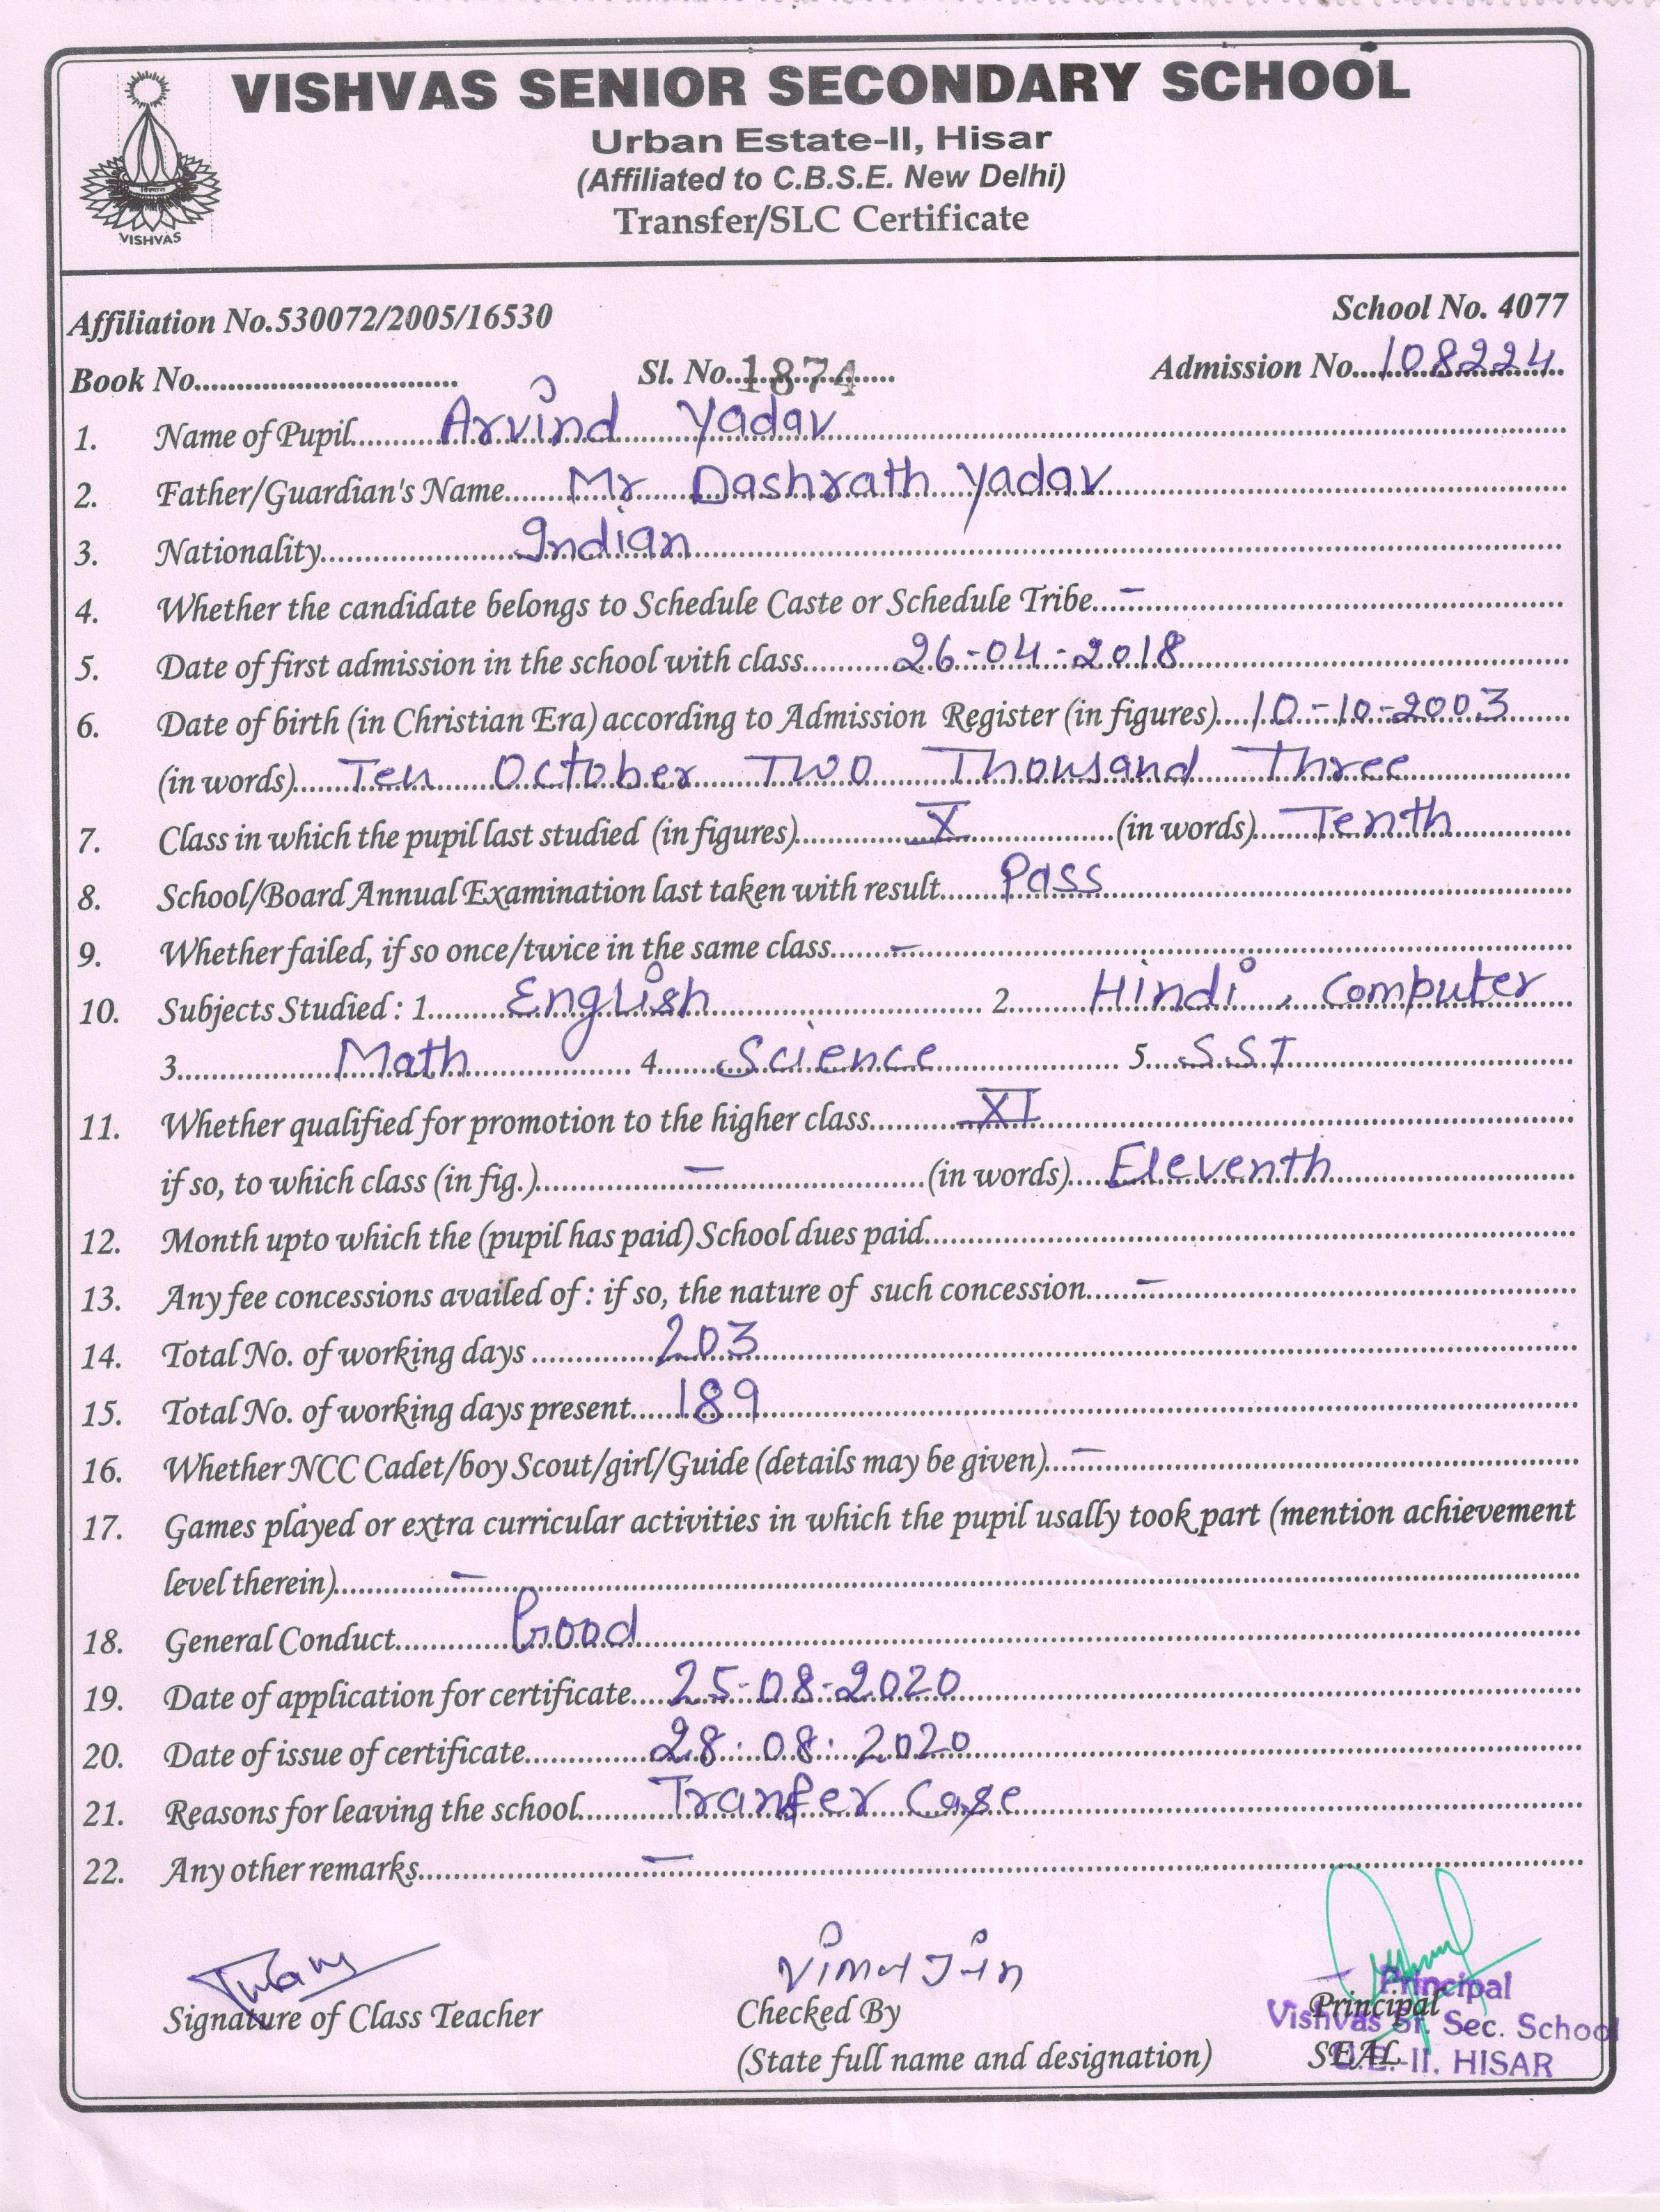 VISHVAS SENIOR SECONDARY SCHOOL
Urban Estate-II, Hisar
(Affiliated to C.B.S.E. New Delhi)
Transfer/SLC Certificate
विश्वास
VISHVAS
Affiliation No.530072/2005/16530 School No. 4077
Book No. Sl. No. 1874 Admission No. 108224
1. Name of Pupil Arvind Yadav
2. Father/Guardian's Name Mr Dashrath Yadav
3. Nationality Indian
4. Whether the candidate belongs to Schedule Caste or Schedule Tribe –
5. Date of first admission in the school with class 26-04-2018
6. Date of birth (in Christian Era) according to Admission Register (in figures) 10-10-2003
(in words) Ten October Two Thousand Three
7. Class in which the pupil last studied (in figures) X (in words) Tenth
8. School/Board Annual Examination last taken with result Pass
9. Whether failed, if so once/twice in the same class –
10. Subjects Studied : 1. English 2. Hindi, Computer
3. Math 4. Science 5. S.S.T
11. Whether qualified for promotion to the higher class XI
if so, to which class (in fig.) – (in words) Eleventh
12. Month upto which the (pupil has paid) School dues paid
13. Any fee concessions availed of : if so, the nature of such concession –
14. Total No. of working days 203
15. Total No. of working days present 189
16. Whether NCC Cadet/boy Scout/girl/Guide (details may be given) –
17. Games played or extra curricular activities in which the pupil usally took part (mention achievement
level therein) –
18. General Conduct Good
19. Date of application for certificate 25-08-2020
20. Date of issue of certificate 28.08.2020
21. Reasons for leaving the school Tranfer Case
22. Any other remarks –
Vimal Jain
Signature of Class Teacher Checked By Principal
(State full name and designation) SEAL
Principal
Vishvas Sr. Sec. School
U.E.-II, HISAR